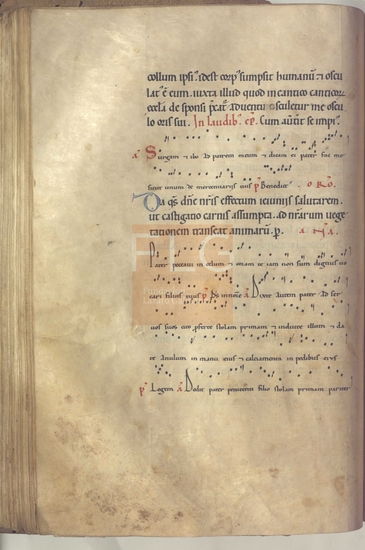 collum ipsi᷒ idest corp᷒ sumpsit humanũ ⁊ oscu
lat᷒ ẽ eum. iuxta illud quod in cantico canticoꝝ
eccl̃a de sponsi p̃cat᷒ aduentu osculetur me oscu
lo oris sui. In laudib᷒ cp̃. Cum aũt se impi᷒.
a Surgam ⁊ ibo ad patrem meum ⁊ dicam ei pater fac me
sicut unum de mercennariis tuis p̃ Benedic᷒. oRo.
Da qs̃ dñe nr̃is effectum ieiuniis salutarem.
ut castigatio carnis assumpta. ad nr̃arum uege
tationem transeat animarũ. p̃.
Pater peccaui in celum ⁊ coram te iam non sum dignus uo
cari filius tuus p̃ a Dixit autem pater ad ser
uos suos cito p̃ferte stolam primam ⁊ induite illum ⁊ da
te anulum in manu eius ⁊ calciamenta in pedibus eius
p̃ Legem a Dedit pater penitenti filio stolam primam. pariter
FLG